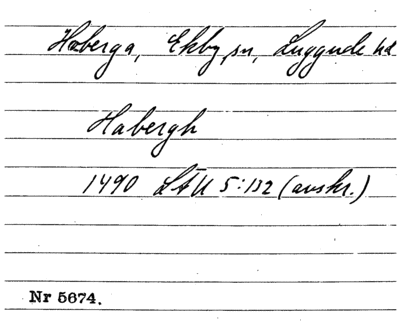 Haberga, Ekby sn, Luggude hd
Habergh
1490 LÄU 5:132 (avskr.)
Nr 5674.